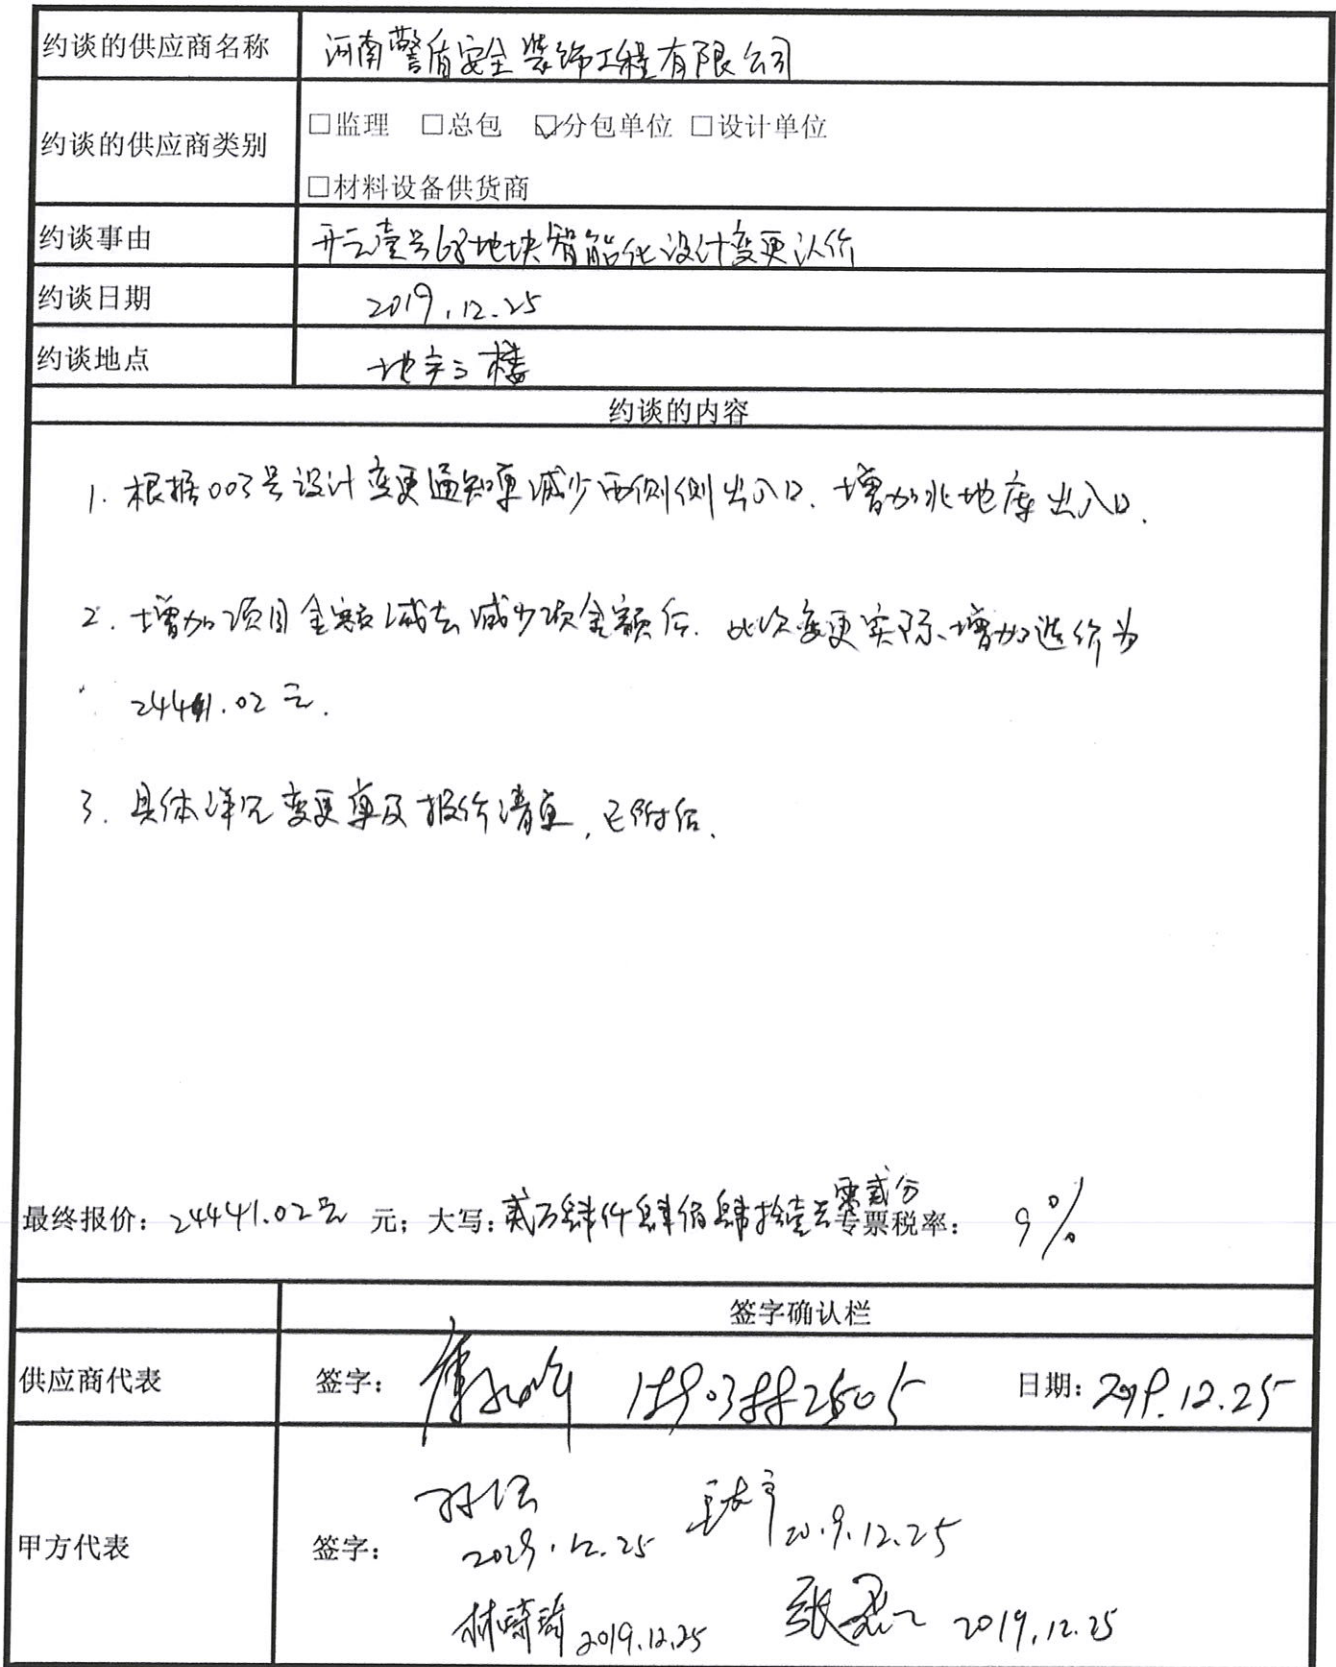 约谈的供应商名称 河南警盾安全装饰工程有限公司
约谈的供应商类别 □监理 □总包 ☑分包单位 □设计单位
□材料设备供货商
约谈事由 开元壹号68地块智能化设计变更认价
约谈日期 2019.12.25
约谈地点 地产三楼
约谈的内容
1. 根据003号设计变更通知单减少西侧侧出入口.增加北地库出入口.
2. 增加项目金额减去减少项金额后.此次变更实际增加造价为
24441.02元.
3. 具体详见变更单及报价清单,已附后.
零贰分
最终报价:24441.02元 元;大写:贰万肆仟肆佰肆拾壹元 专票税率: 9%
签字确认栏
供应商代表 签字: 日期:2019.12.25
甲方代表 签字:
2019.12.25 2019.12.25
林琦琦 2019.12.25 张 2019.12.25